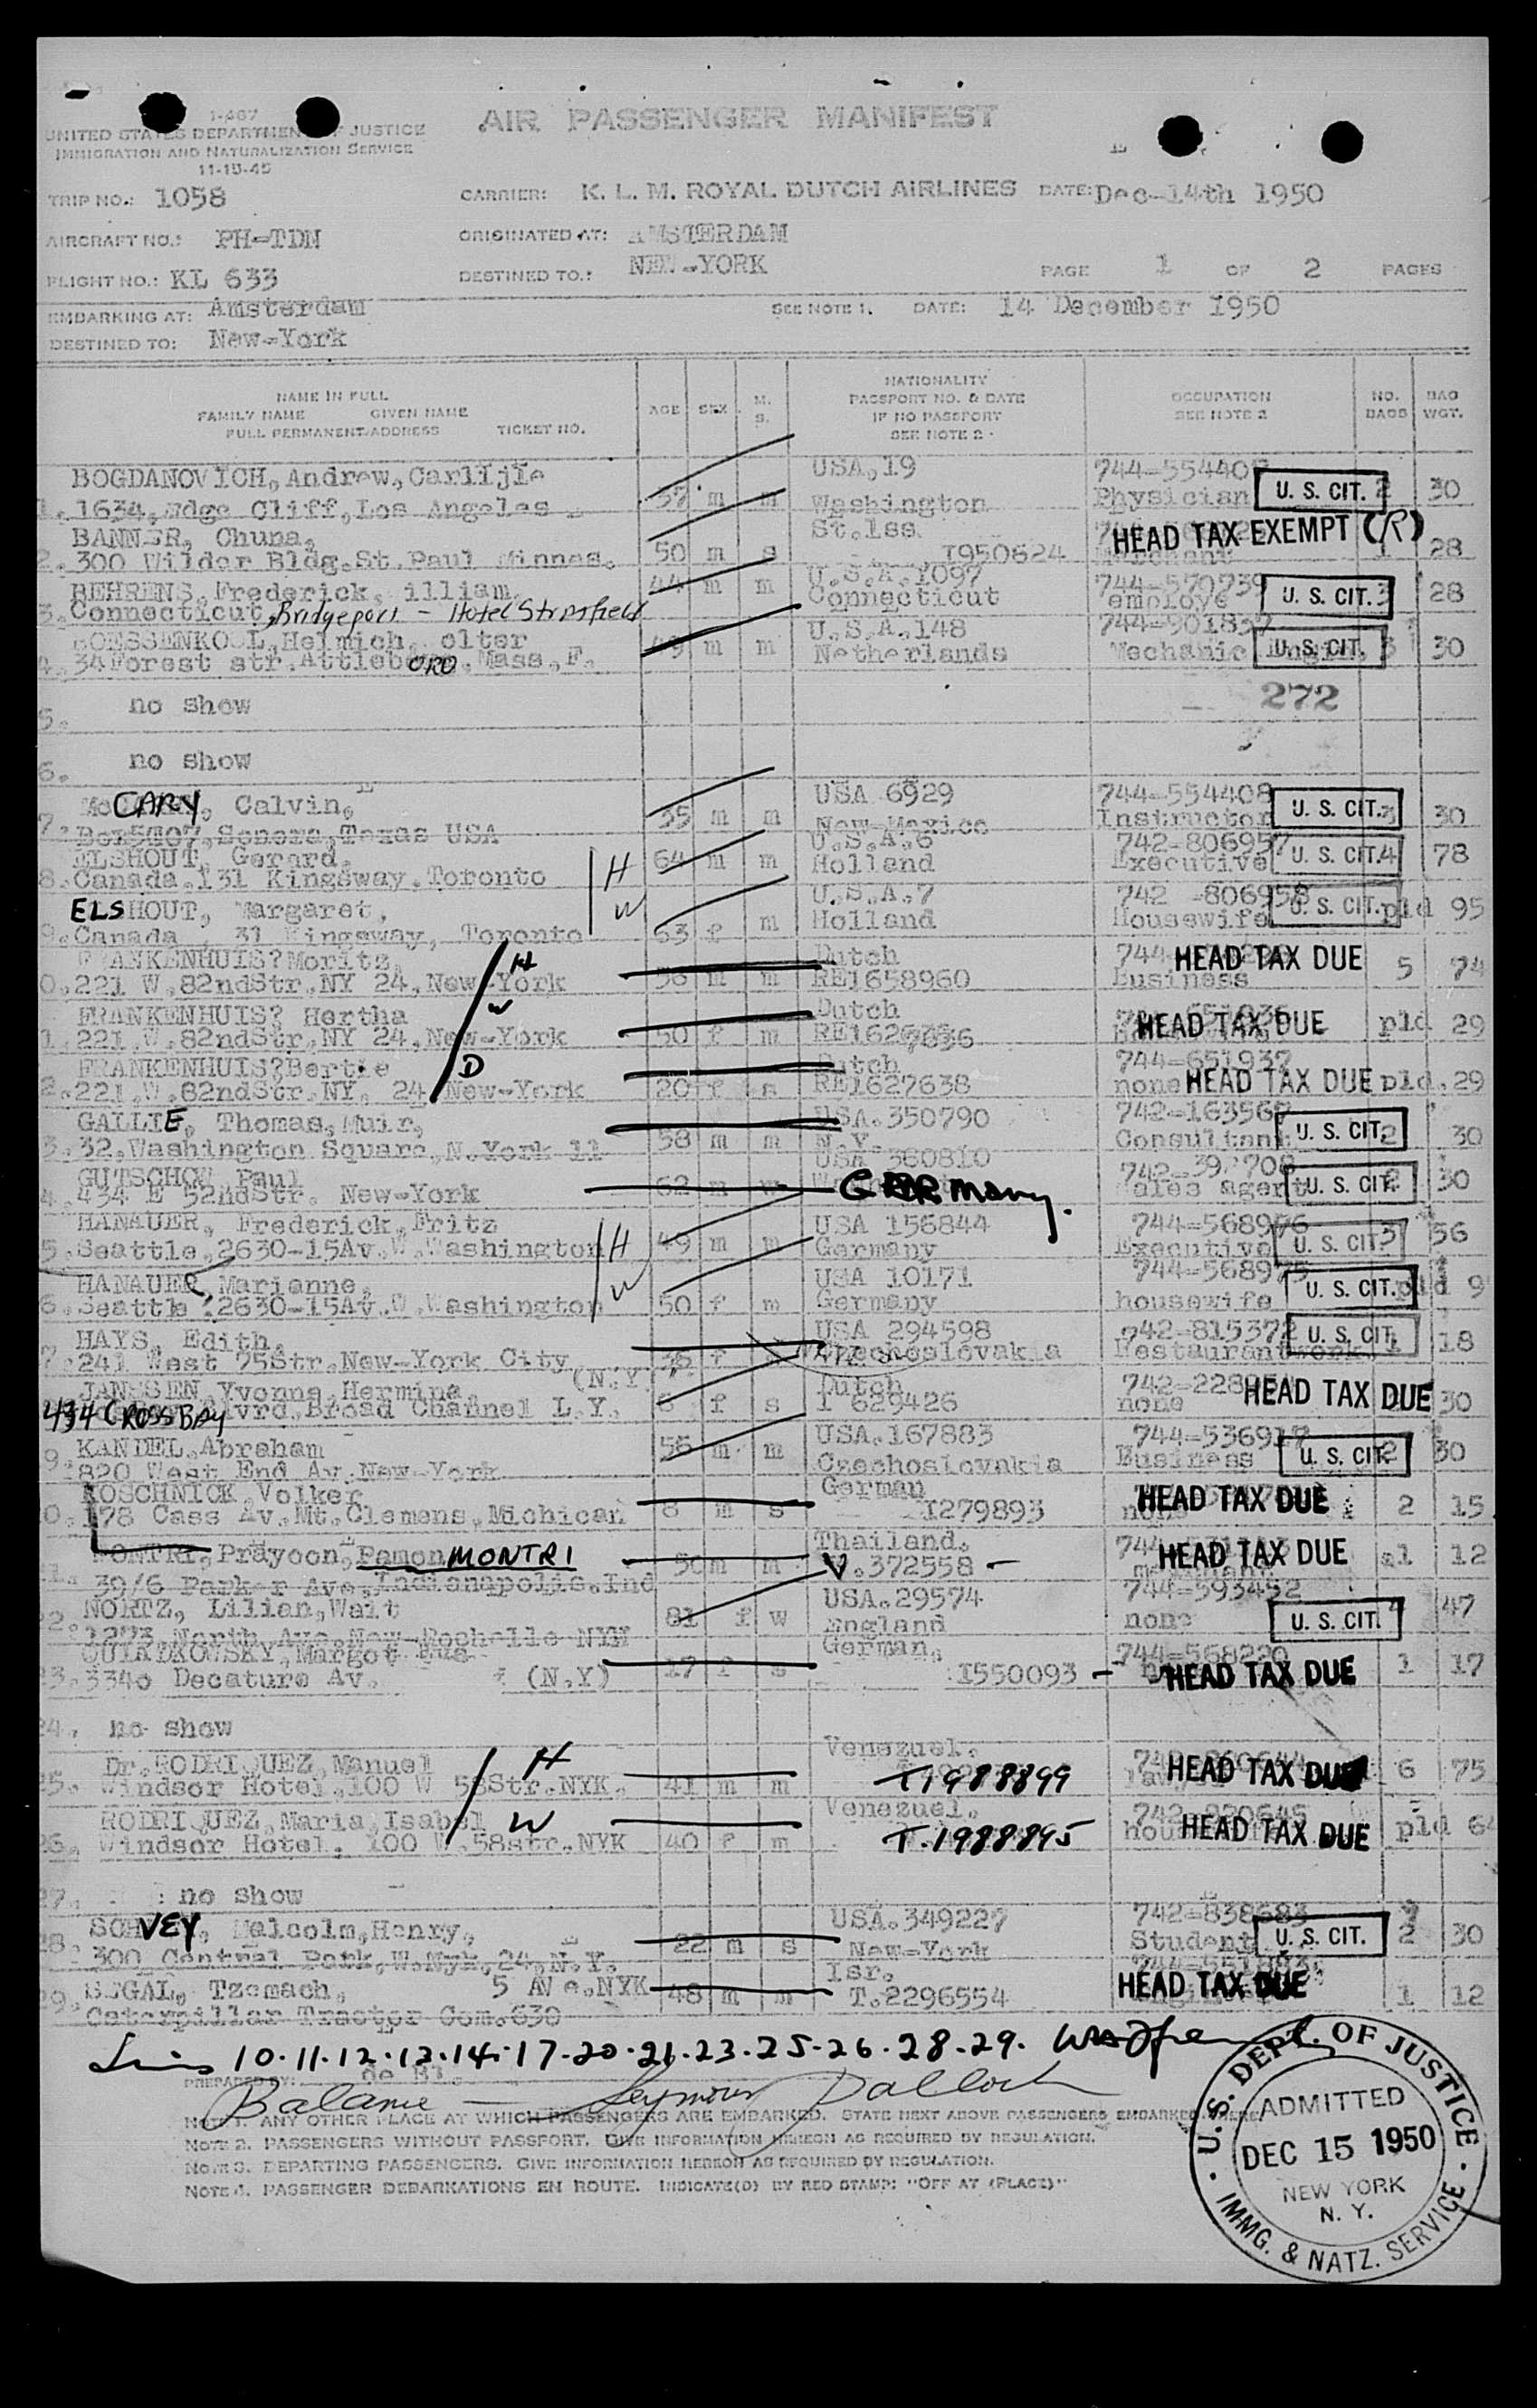 1-467
UNITED STATES DEPARTMENT OF JUSTICE
IMMIGRATION AND NATURALIZATION SERVICE
11-15-45
AIR PASSENGER MANIFEST
TRIP NO.: 1058
CARRIER: K. L. M. ROYAL DUTCH AIRLINES DATE: Dec-14th 1950
AIRCRAFT NO.: PH-TDN
ORIGINATED AT: AMSTERDAM
FLIGHT NO.: KL 633
DESTINED TO.: NEW-YORK
PAGE 1 OF 2 PAGES
EMBARKING AT: Amsterdam
SEE NOTE 1. DATE: 14 December 1950
DESTINED TO: New-York
NAME IN FULL
FAMILY NAME GIVEN NAME
FULL PERMANENT ADDRESS TICKET NO.
AGE SEX M. S.
NATIONALITY
PASSPORT NO. & DATE
IF NO PASSPORT
SEE NOTE 2
OCCUPATION
SEE NOTE 2
NO. BAGS
BAG WGT.
BOGDANOVICH, Andrew, Carlijle USA, 19
1. 1634, Edge Cliff, Los Angeles 57 m m Washington Physician U. S. CIT. 2 30
BANNER, Chuna, St.lss.
2. 300 Wilder Bldg. St. Paul Minnes. 50 m s I950624 HEAD TAX EXEMPT (R) 1 28
BEHRENS, Frederick, illiam. 44 m m U.S.A. 1097 744-570739
3. Connecticut, Bridgeport - Hotel Stratfield Connecticut employe U. S. CIT. 3 28
Helmich, olter 49 m m U.S.A. 148
4. 34 Forest str. Attleboro ORO, Mass, F. Netherlands Mechanic U. S. CIT. 3 30
5. no show 272
6. no show
CARY, Calvin, USA 6929 744-554408
7. Sonora, Texas USA 35 m m New-Mexico Instructor U. S. CIT. 3 30
ELSHOUT, Gerard. 64 m m U.S.A. 6 742-806957
8. Canada, 131 Kingsway, Toronto H Holland Executive U. S. CIT. 4 78
ELSHOUT, Margaret, W U.S.A. 7 742 -806958
9. Canada, 31 Kingsway, Toronto 53 f m Holland Housewife U. S. CIT. pld 95
FRANKENHUIS? Moritz, H Dutch 744- HEAD TAX DUE
0. 221 W. 82ndStr. NY 24, New-York 56 m m RE1658960 Business 5 74
FRANKENHUIS? Hertha W Dutch
1. 221 W. 82ndStr. NY 24, New-York 50 f m HEAD TAX DUE pld 29
FRANKENHUIS? Bertie D Dutch 744-651937
2. 221 W. 82ndStr. NY. 24 New-York 20 f s RE1627638 none HEAD TAX DUE pld. 29
GALLIE, Thomas, Muir, USA. 350790
3. 32, Washington Square, N.York 11 58 m m N.Y. Consultant U. S. CIT. 2 30
GUTSCHOW, Paul USA 360810
4. 434 E 52ndStr. New-York 62 m GERMANY. Sales agent U. S. CIT. 2 30
HANAUER, Frederick, Fritz USA 156844 744-568976
5. Seattle, 2630-15Av. W. Washington H 49 m m Germany Executive U. S. CIT. 3 56
HANAUER, Marianne, USA 10171 744-568975
6. Seattle, 2630-15Av. W. Washington W 50 f m Germany housewife U. S. CIT. pld 9
HAYS, Edith, USA 294598 742-815372
7. 241 West 75Str. New-York City (N.Y.) f Czechoslovakia U. S. CIT. 1 18
JANSSEN, Yvonne, Hermina, Dutch
434 CROSS BAY Blvrd. Broad Channel L.Y. f s I 629426 none HEAD TAX DUE 30
KANDEL, Abraham 56 m m USA. 167883 744-536917
9. 820 West End Av. New-York Czechoslovakia Business U. S. CIT. 2 30
KOSCHNICK, Volker German
0. 178 Cass Av. Mt. Clemens, Michican 8 m s I279893 none HEAD TAX DUE 2 15
MONTRI, Prayoon, Pamon MONTRI 50 m m Thailand. V. 372558 - HEAD TAX DUE 1 12
1. 39/6 Parker Ave. Indianapolis. Ind
NORTZ, Lilian, Wait 81 f w USA. 29574 744-593452
2. 1273 North Ave. New-Rochelle NYK England none U. S. CIT. 47
Margot German, 744-568220
3. 334o Decature Av. (N.Y) 17 f s I550093 - HEAD TAX DUE 1 17
24. no show
Dr. RODRIQUEZ, Manuel H Venezuel.
25. Windsor Hotel, 100 W 58Str. NYK. 41 m m T1988899 HEAD TAX DUE 6 75
RODRIQUEZ, Maria, Isabel W Venezuel.
26. Windsor Hotel. 100 W. 58str. NYK 40 f m T.1988895 HEAD TAX DUE pld 64
27. no show
VEY, Malcolm, Henry, USA. 349227 742-838683
28. 300 Central Park, W. Nyk, 24, N.Y. 22 m s New-York Student U. S. CIT. 2 30
SEGAL, Tzemach, 5 Ave. NYK 48 m m Isr. T.2296554 HEAD TAX DUE 1 12
29. Caterpillar Tractor Com. 630
10.11.12.13.14.17.20.21.23.25.26.28.29.
PREPARED BY:
Balance - Seymour
NOTE 1. ANY OTHER PLACE AT WHICH PASSENGERS ARE EMBARKED. STATE NEXT ABOVE PASSENGERS EMBARKED THERE.
NOTE 2. PASSENGERS WITHOUT PASSPORT. GIVE INFORMATION HEREON AS REQUIRED BY REGULATION.
NOTE 3. DEPARTING PASSENGERS. GIVE INFORMATION HEREON AS REQUIRED BY REGULATION.
NOTE 4. PASSENGER DEBARKATIONS EN ROUTE. INDICATE(D) BY RED STAMP: "OFF AT (PLACE)"
U.S. DEPT. OF JUSTICE
ADMITTED
DEC 15 1950
NEW YORK
N. Y.
IMMG. & NATZ. SERVICE